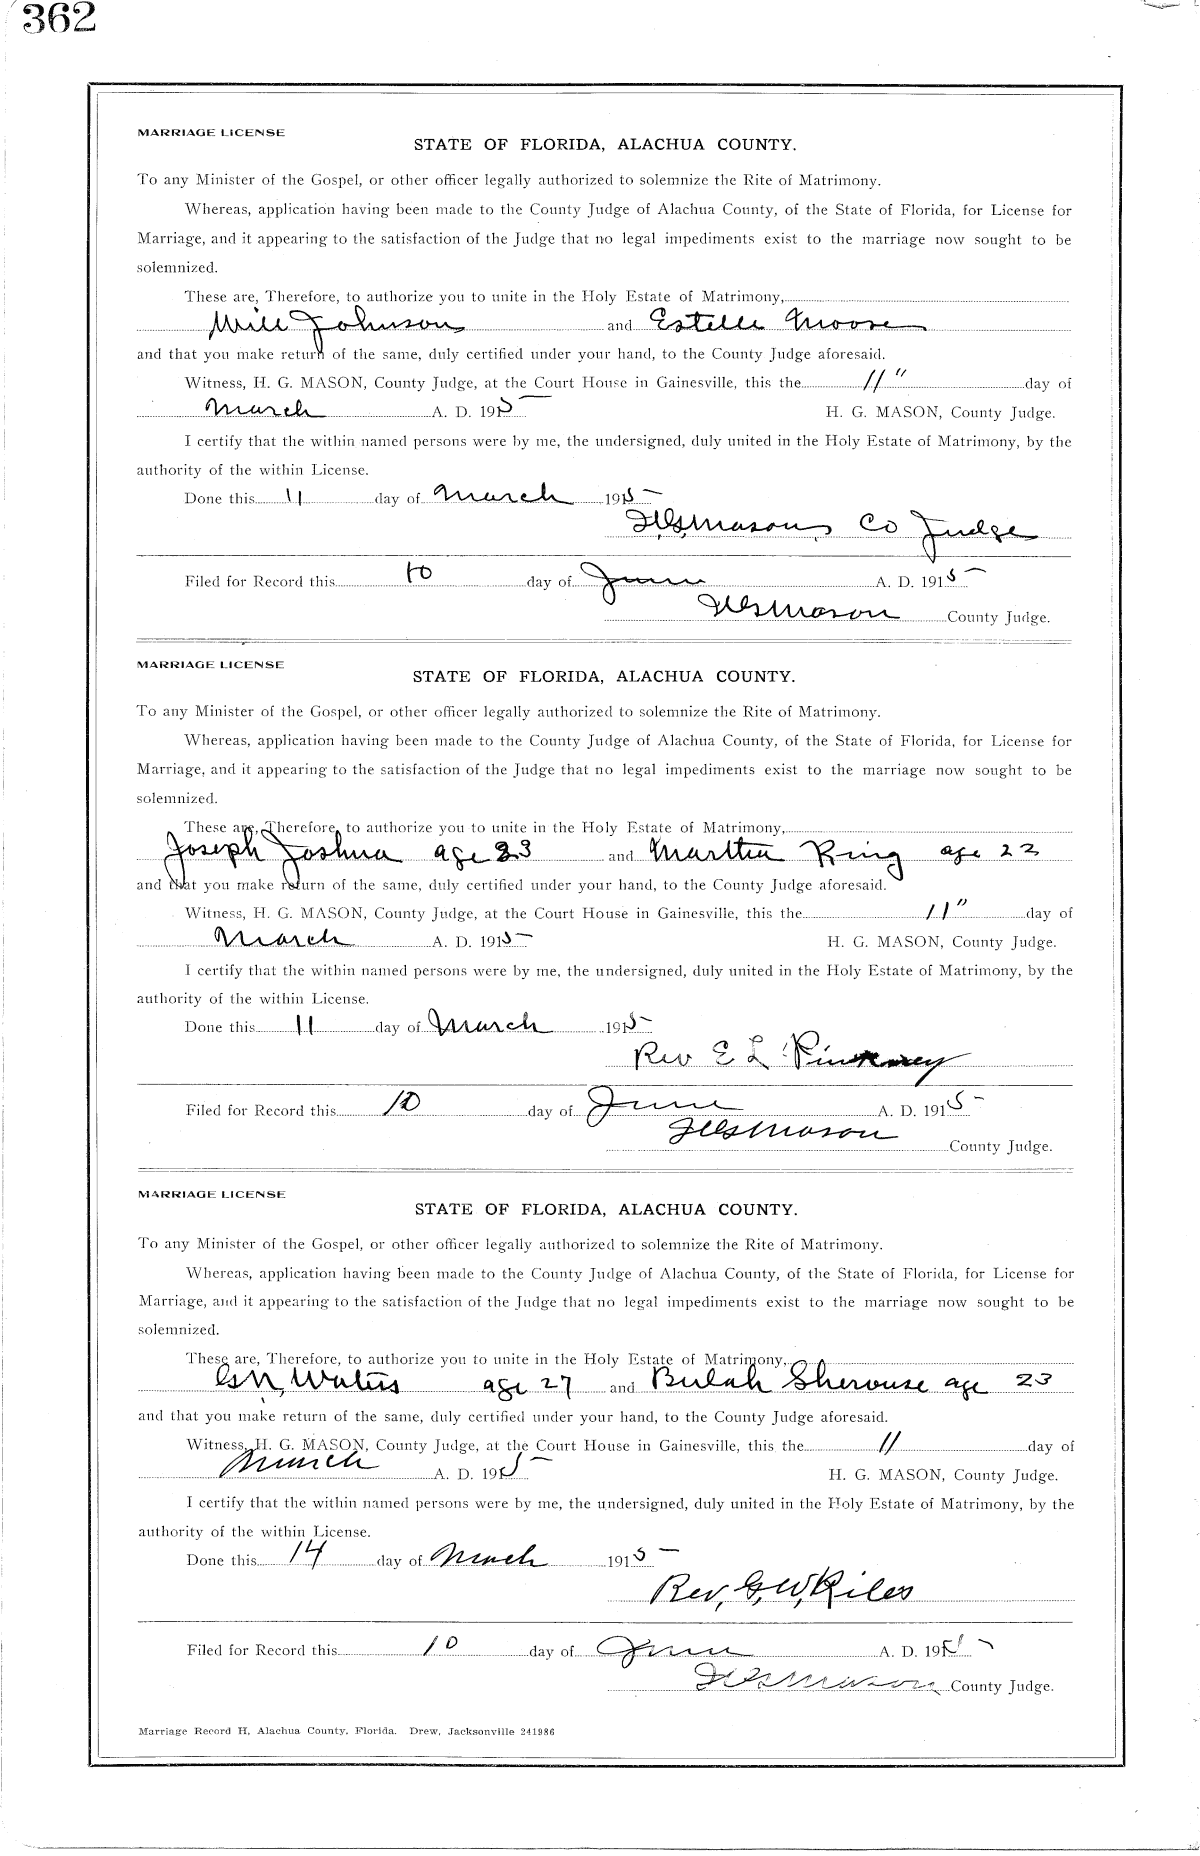 362
MARRIAGE LICENSE
STATE OF FLORIDA, ALACHUA COUNTY.
To any Minister of the Gospel, or other officer legally authorized to solemnize the Rite of Matrimony.
Whereas, application having been made to the County Judge of Alachua County, of the State of Florida, for License for
Marriage, and it appearing to the satisfaction of the Judge that no legal impediments exist to the marriage now sought to be
solemnized.
These are, Therefore, to authorize you to unite in the Holy Estate of Matrimony,
Will Johnson and Estelle Moore
and that you make return of the same, duly certified under your hand, to the County Judge aforesaid.
Witness, H. G. MASON, County Judge, at the Court House in Gainesville, this the 11" day of
March A. D. 1915 H. G. MASON, County Judge.
I certify that the within named persons were by me, the undersigned, duly united in the Holy Estate of Matrimony, by the
authority of the within License.
Done this 11 day of March 1915
H.G. Mason, Co Judge
Filed for Record this 10 day of June A. D. 1915
H G Mason County Judge.
MARRIAGE LICENSE
STATE OF FLORIDA, ALACHUA COUNTY.
To any Minister of the Gospel, or other officer legally authorized to solemnize the Rite of Matrimony.
Whereas, application having been made to the County Judge of Alachua County, of the State of Florida, for License for
Marriage, and it appearing to the satisfaction of the Judge that no legal impediments exist to the marriage now sought to be
solemnized.
These are, Therefore, to authorize you to unite in the Holy Estate of Matrimony,
Joseph Joshua age 23 and Martha King age 22
and that you make return of the same, duly certified under your hand, to the County Judge aforesaid.
Witness, H. G. MASON, County Judge, at the Court House in Gainesville, this the 11" day of
March A. D. 1915 H. G. MASON, County Judge.
I certify that the within named persons were by me, the undersigned, duly united in the Holy Estate of Matrimony, by the
authority of the within License.
Done this 11 day of March 1915
Rev E L Pinkney
Filed for Record this 10 day of June A. D. 1915
H G Mason County Judge.
MARRIAGE LICENSE
STATE OF FLORIDA, ALACHUA COUNTY.
To any Minister of the Gospel, or other officer legally authorized to solemnize the Rite of Matrimony.
Whereas, application having been made to the County Judge of Alachua County, of the State of Florida, for License for
Marriage, and it appearing to the satisfaction of the Judge that no legal impediments exist to the marriage now sought to be
solemnized.
These are, Therefore, to authorize you to unite in the Holy Estate of Matrimony,
Waters age 27 and Bulah Sherouse age 23
and that you make return of the same, duly certified under your hand, to the County Judge aforesaid.
Witness, H. G. MASON, County Judge, at the Court House in Gainesville, this the 11 day of
March A. D. 1915 H. G. MASON, County Judge.
I certify that the within named persons were by me, the undersigned, duly united in the Holy Estate of Matrimony, by the
authority of the within License.
Done this 14 day of March 1915
Rev, G, W, Riles
Filed for Record this 10 day of June A. D. 1915
H G Mason County Judge.
Marriage Record H, Alachua County, Florida. Drew, Jacksonville 241986